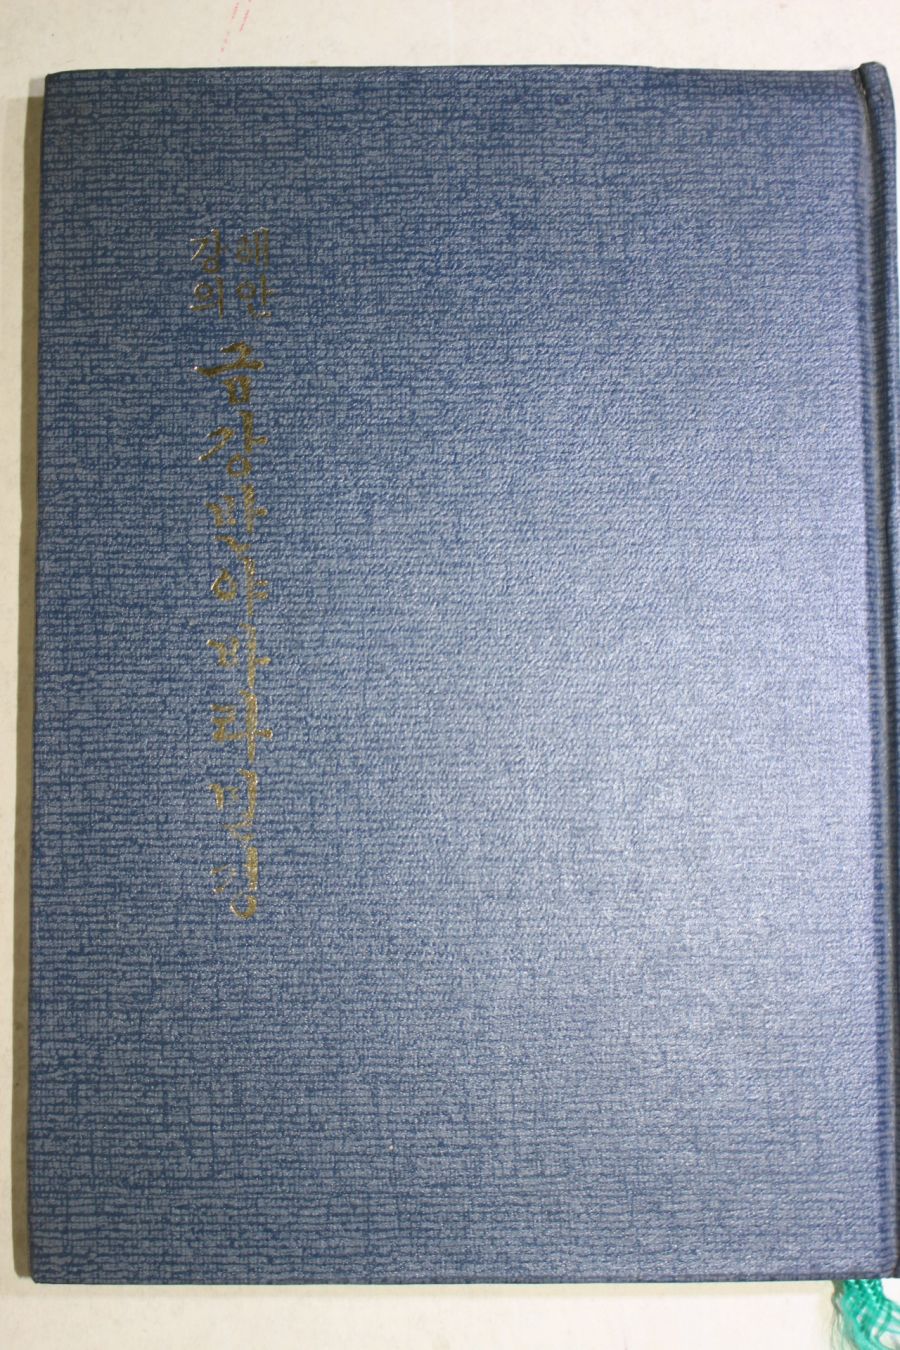 해안
강의
금강반야바라밀경